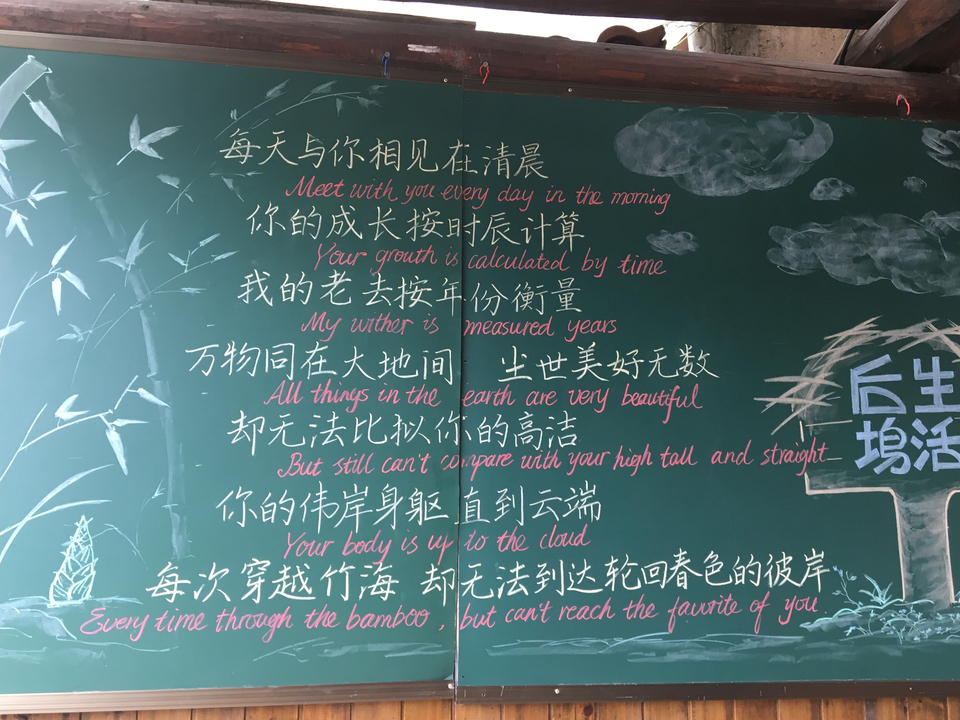 每天与你相见在清晨
Meet with you every day in the morning
你的成长按时辰计算
Your grouth is calculated by time
我的老去按年份衡量
My wither is measured years
万物同在大地间 尘世美好无数
All things in the earth are very beautiful
却无法比拟你的高洁
But still can't compare with your high tall and straight
你的伟岸身躯直到云端
Your body is up to the cloud
每次穿越竹海 却无法到达轮回春色的彼岸
Every time through the bamboo, but can't reach the favorite of you.
后生
坞活